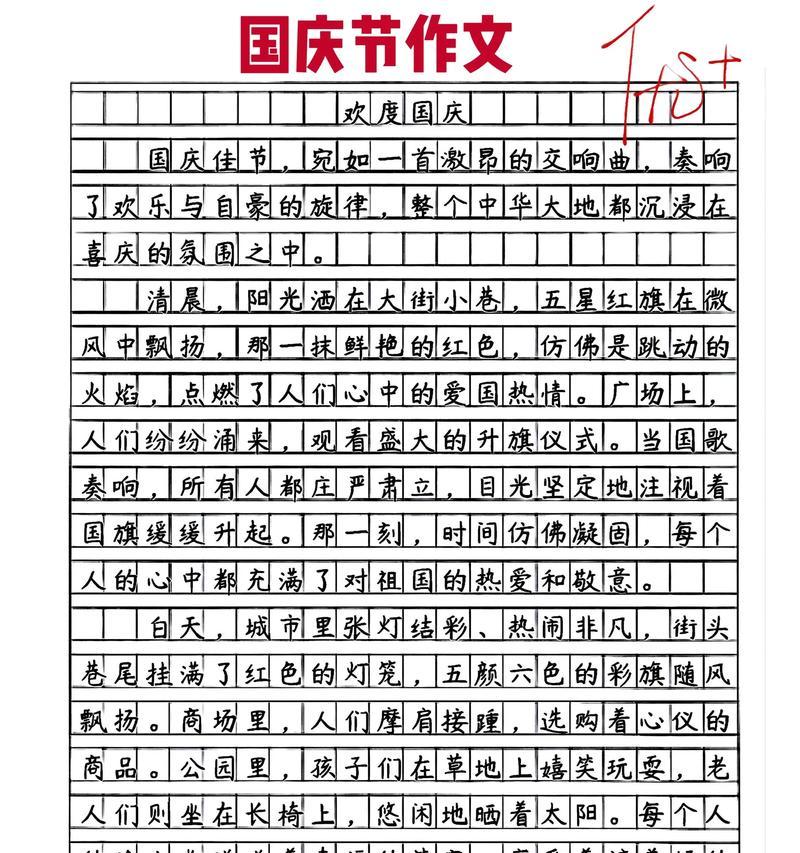 国庆节作文
优+
欢度国庆
国庆佳节，宛如一首激昂的交响曲，奏响
了欢乐与自豪的旋律，整个中华大地都沉浸在
喜庆的氛围之中。
清晨，阳光洒在大街小巷，五星红旗在微
风中飘扬，那一抹鲜艳的红色，仿佛是跳动的
火焰，点燃了人们心中的爱国热情。广场上，
人们纷纷涌来，观看盛大的升旗仪式。当国歌
奏响，所有人都庄严肃立，目光坚定地注视着
国旗缓缓升起。那一刻，时间仿佛凝固，每个
人的心中都充满了对祖国的热爱和敬意。
白天，城市里张灯结彩、热闹非凡，街头
巷尾挂满了红色的灯笼，五颜六色的彩旗随风
飘扬。商场里，人们摩肩接踵，选购着心仪的
商品。公园里，孩子们在草地上嬉笑玩耍，老
人们则坐在长椅上，悠闲地晒着太阳。每个人